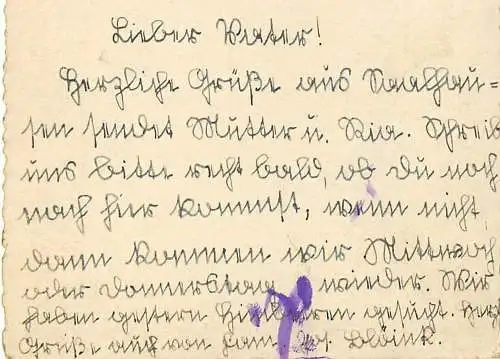 Lieber Vater!
Herzliche Grüße aus Saalhau=
sen sendet Mutter u. Ria. Schreib
uns bitte recht bald, ob du noch
nach hier kommst, wenn nicht,
dann kommen wir Mittwoch
oder Donnerstag wieder. Wir
haben gestern Himbeeren gesucht. Herz
Grüße auch von Fam. Jos.